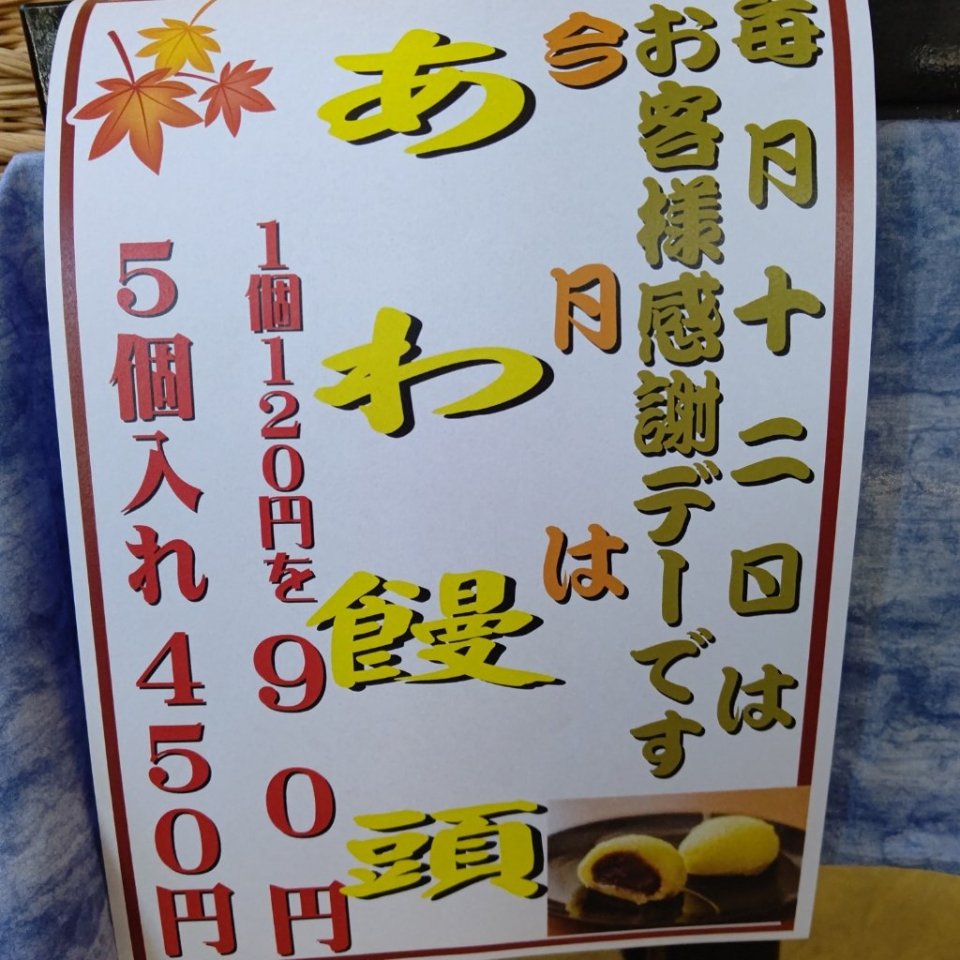 毎月十二日は
お客様感謝デーです
今月は
あわ饅頭
1個120円を90円
5個入れ450円